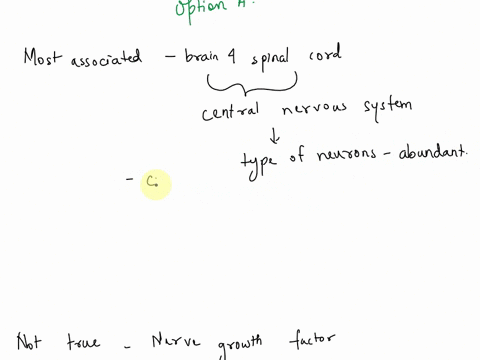 Option A.
Most associated - brain & spinal cord
central nervous system
type of neurons - abundant.
- c
Not true - Nerve growth factor